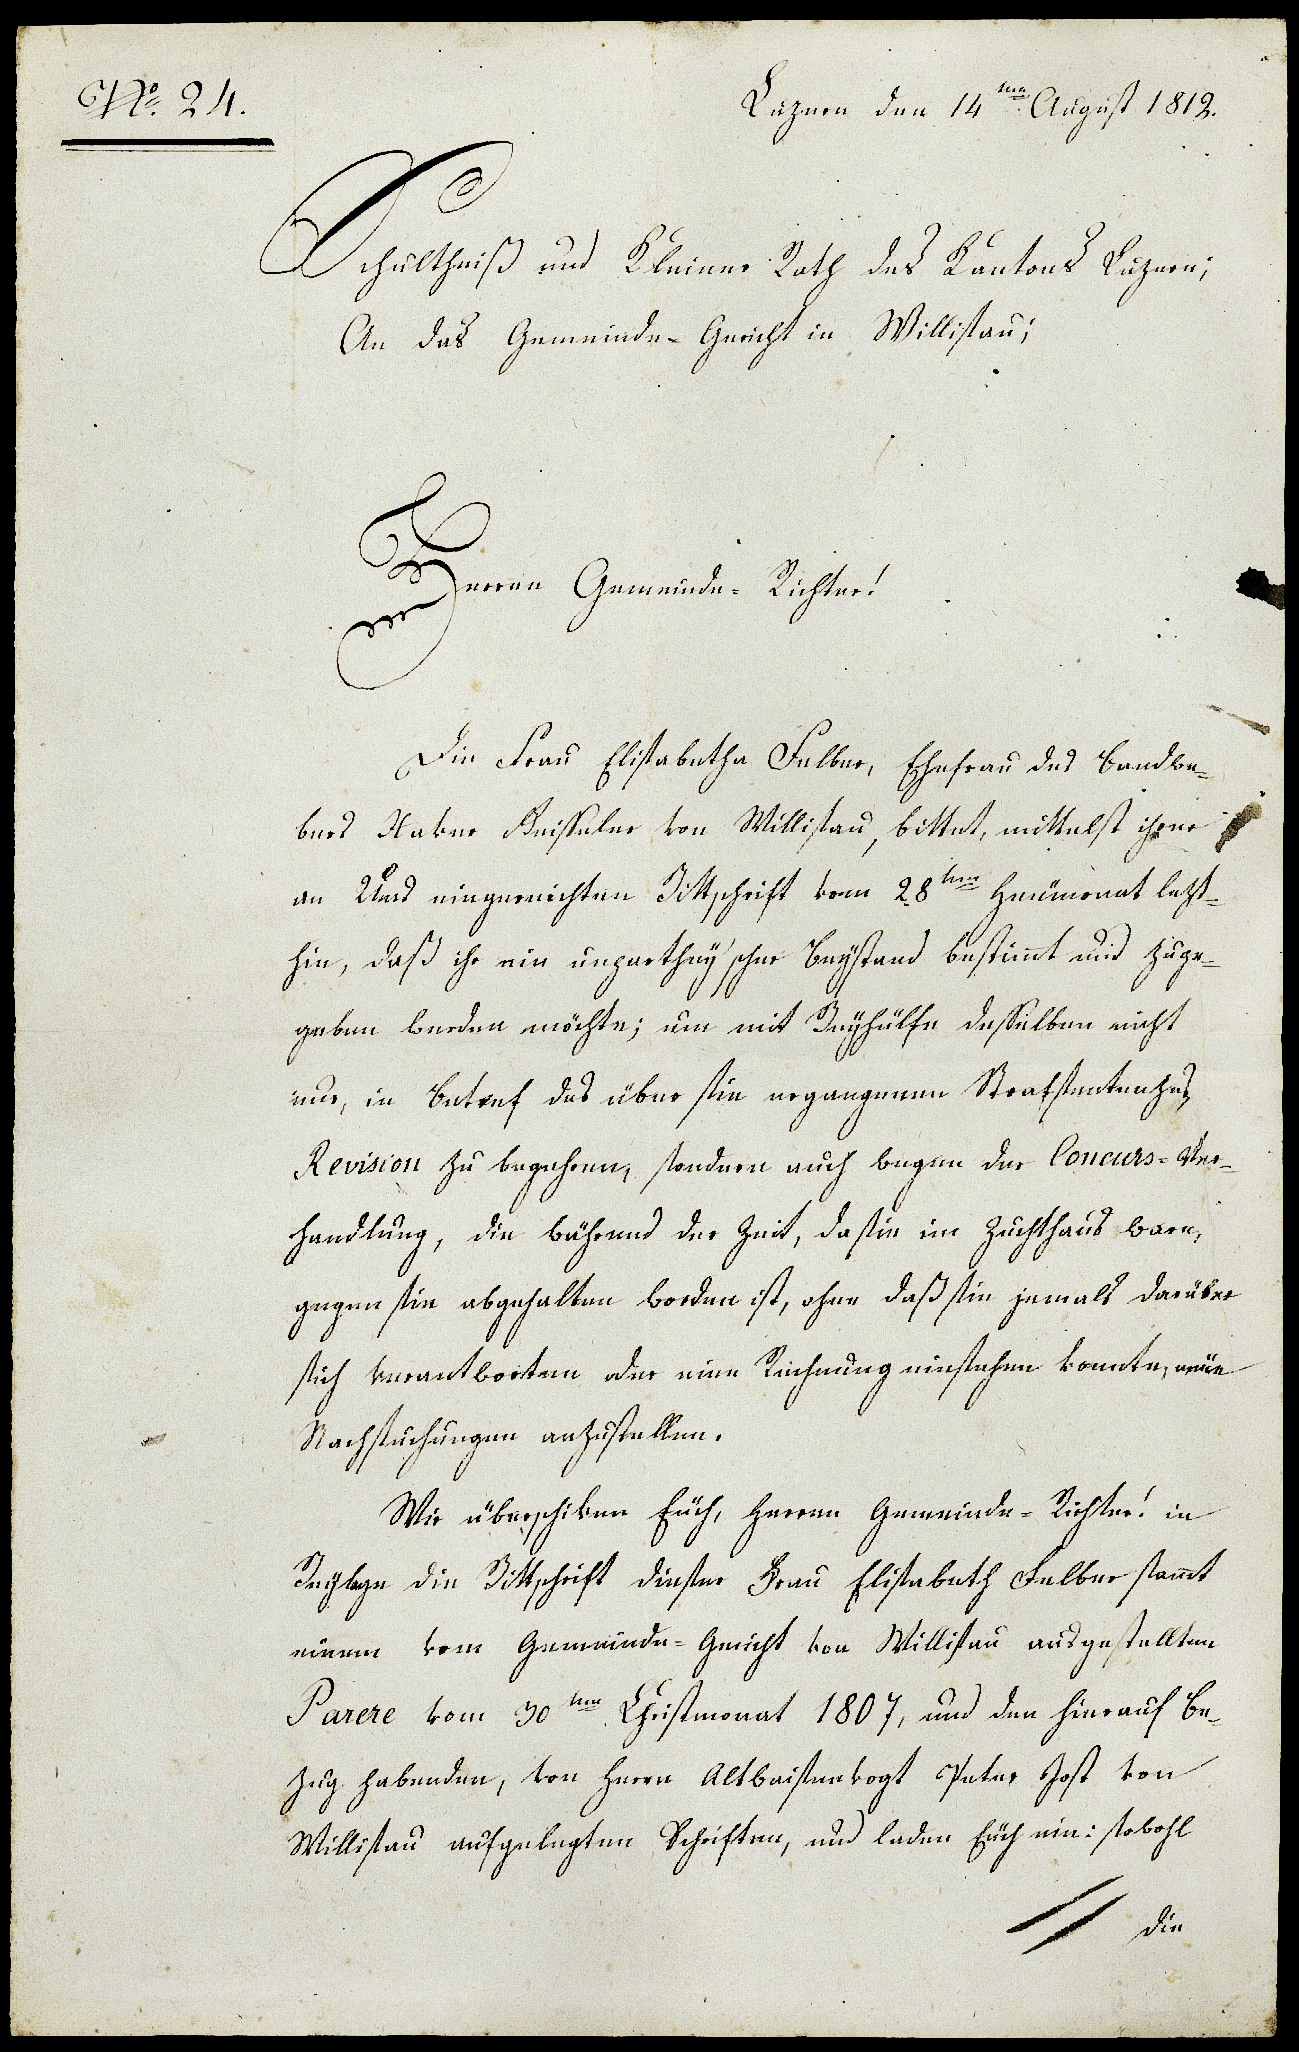 No. 24.
Luzern den 14ten August 1812.
Schultheiß und Kleiner Rath des Kantons Luzern;
An das Gemeinde-Gericht in Willisau;
Herren Gemeinde-Richter!
Die Frau Elisabetha Felber, Ehefrau des Bandwe-
bers Xaver Kneubüler von Willisau, bittet, mittelst ihrer
an Uns eingereichten Bittschrift vom 28ten Heümonat letzt-
hin, daß ihr ein unparthey'scher Beystand bestimt und zuge-
geben werden möchte; um mit Beyhülfe desselben nicht
nur, in Betref des über sie ergangenen Strafsentenzes,
Revision zu begehren, sondern auch wegen der Concurs-Ver-
handlung, die während der Zeit, da sie im Zuchthaus ware,
gegen sie abgehalten worden ist, ohne daß sie jemals darüber
sich verantworten oder eine Rechnung einsehen konnte, neüe
Nachsuchungen anzustellen.
Wir überschiken Eüch, Herren Gemeinde-Richter! in
Beylage die Bittschrift dieser Frau Elisabeth Felber samt
einem vom Gemeinde-Gericht von Willisau ausgestellten
Parere vom 30ten Christmonat 1807, und den hierauf Be-
zug habenden, von Herrn Altwaisenvogt Peter Jost von
Willisau aufgelegten Schriften, und laden Eüch ein: sowohl
// die